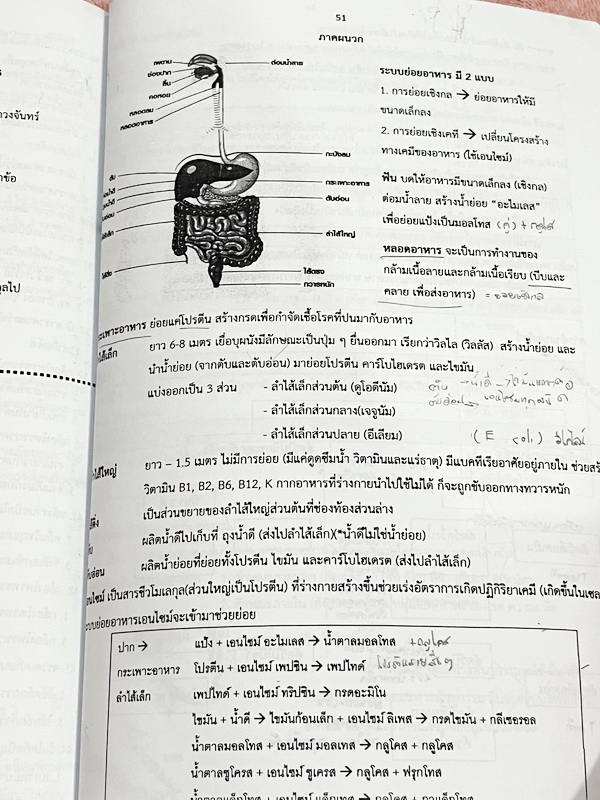 51
ภาคผนวก
วงจันทร์
าข้อ
ลไป
เพดาน
ช่องปาก
ลิ้น
คอหอย
หลอดลม
หลอดอาหาร
ต่อมน้ำลาย
กะบังลม
ตับ
กระเพาะอาหาร
ตับอ่อน
ลำไส้ใหญ่
ไส้ตรง
ทวารหนัก
ระบบย่อยอาหาร มี 2 แบบ
1. การย่อยเชิงกล → ย่อยอาหารให้มี
ขนาดเล็กลง
2. การย่อยเชิงเคมี → เปลี่ยนโครงสร้าง
ทางเคมีของอาหาร (ใช้เอนไซม์)
ฟัน บดให้อาหารมีขนาดเล็กลง (เชิงกล)
ต่อมน้ำลาย สร้างน้ำย่อย "อะไมเลส"
เพื่อย่อยแป้งเป็นมอลโทส
หลอดอาหาร จะเป็นการทำงานของ
กล้ามเนื้อลายและกล้ามเนื้อเรียบ (บีบและ
คลาย เพื่อส่งอาหาร)
กระเพาะอาหาร ย่อยแค่โปรตีน สร้างกรดเพื่อกำจัดเชื้อโรคที่ปนมากับอาหาร
ไส้เล็ก ยาว 6-8 เมตร เยื่อบุผนังมีลักษณะเป็นปุ่ม ๆ ยื่นออกมา เรียกว่าวิลไล (วิลลัส) สร้างน้ำย่อย และ
นำน้ำย่อย (จากตับและตับอ่อน) มาย่อยโปรตีน คาร์โบไฮเดรต และไขมัน
แบ่งออกเป็น 3 ส่วน - ลำไส้เล็กส่วนต้น (ดูโอดินัม)
- ลำไส้เล็กส่วนกลาง(เจจูนัม)
- ลำไส้เล็กส่วนปลาย (อีเลียม) (E coli)
ำไส้ใหญ่ ยาว – 1.5 เมตร ไม่มีการย่อย (มีแค่ดูดซึมน้ำ วิตามินและแร่ธาตุ) มีแบคทีเรียอาศัยอยู่ภายใน ช่วยสร้
วิตามิน B1, B2, B6, B12, K กากอาหารที่ร่างกายนำไปใช้ไม่ได้ ก็จะถูกขับออกทางทวารหนัก
เป็นส่วนขยายของลำไส้ใหญ่ส่วนต้นที่ช่องท้องส่วนล่าง
ผลิตน้ำดีไปเก็บที่ ถุงน้ำดี (ส่งไปลำไส้เล็ก)(*น้ำดีไม่ใช่น้ำย่อย)
ับอ่อน ผลิตน้ำย่อยที่ย่อยทั้งโปรตีน ไขมัน และคาร์โบไฮเดรต (ส่งไปลำไส้เล็ก)
อนไซม์ เป็นสารชีวโมเลกุล(ส่วนใหญ่เป็นโปรตีน) ที่ร่างกายสร้างขึ้นช่วยเร่งอัตราการเกิดปฏิกิริยาเคมี (เกิดขึ้นในเซล
ระบบย่อยอาหารเอนไซม์จะเข้ามาช่วยย่อย
ปาก → แป้ง + เอนไซม์ อะไมเลส → น้ำตาลมอลโทส
กระเพาะอาหาร โปรตีน + เอนไซม์ เพปซิน → เพปไทด์
ลำไส้เล็ก เพปไทด์ + เอนไซม์ ทริปซิน → กรดอะมิโน
ไขมัน + น้ำดี → ไขมันก้อนเล็ก + เอนไซม์ ลิเพส → กรดไขมัน + กลีเซอรอล
น้ำตาลมอลโทส + เอนไซม์ มอลเทส → กลูโคส + กลูโคส
น้ำตาลซูโครส + เอนไซม์ ซูเครส → กลูโคส + ฟรุกโทส
น้ำตาลแล็กโทส + เอนไซม์ แล็กเทส → กลูโคส + กาแล็กโทส